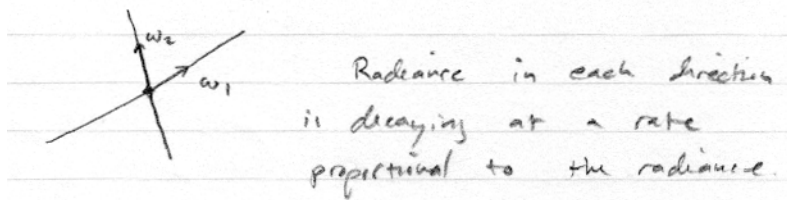 ω₂
ω₁
Radiance in each direction
is decaying at a rate
proportional to the radiance.